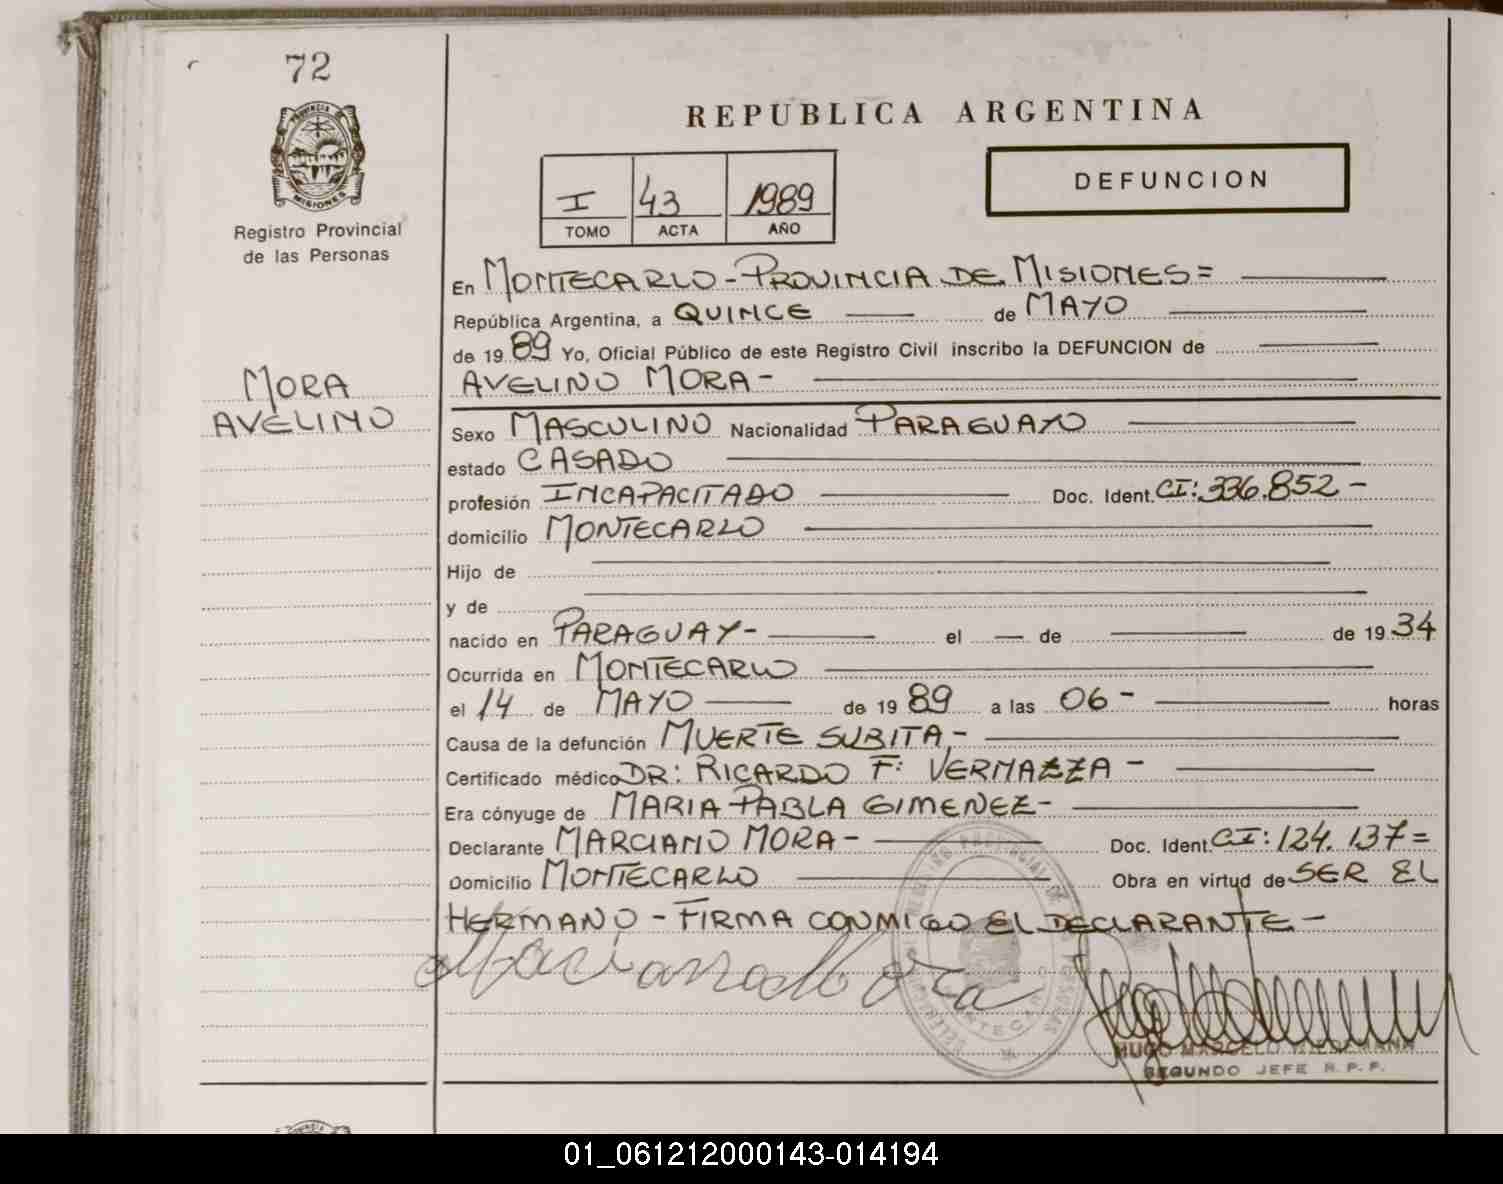 72
PROVINCIA DE
MISIONES
Registro Provincial
de las Personas
MORA
AVELINO
REPUBLICA ARGENTINA
I 43 1989
TOMO ACTA AÑO
DEFUNCION
En MONTECARLO - PROVINCIA DE MISIONES =
República Argentina, a QUINCE de MAYO
de 1989 Yo, Oficial Público de este Registro Civil inscribo la DEFUNCION de
AVELINO MORA -
Sexo MASCULINO Nacionalidad PARAGUAYO
estado CASADO
profesión INCAPACITADO Doc. Ident. CI: 336.852 -
domicilio MONTECARLO
Hijo de
y de
nacido en PARAGUAY - el — de — de 1934
Ocurrida en MONTECARLO
el 14 de MAYO de 1989 a las 06 - horas
Causa de la defunción MUERTE SUBITA -
Certificado médico DR: RICARDO F: VERNAZZA -
Era cónyuge de MARIA PABLA GIMENEZ -
Declarante MARCIANO MORA - Doc. Ident. CI: 124.137 =
Domicilio MONTECARLO Obra en virtud de SER EL
HERMANO - FIRMA CONMIGO EL DECLARANTE -
Marciano Mora
HUGO MARCELO WIEDEMANN
SEGUNDO JEFE R. P. P.
01_061212000143-014194